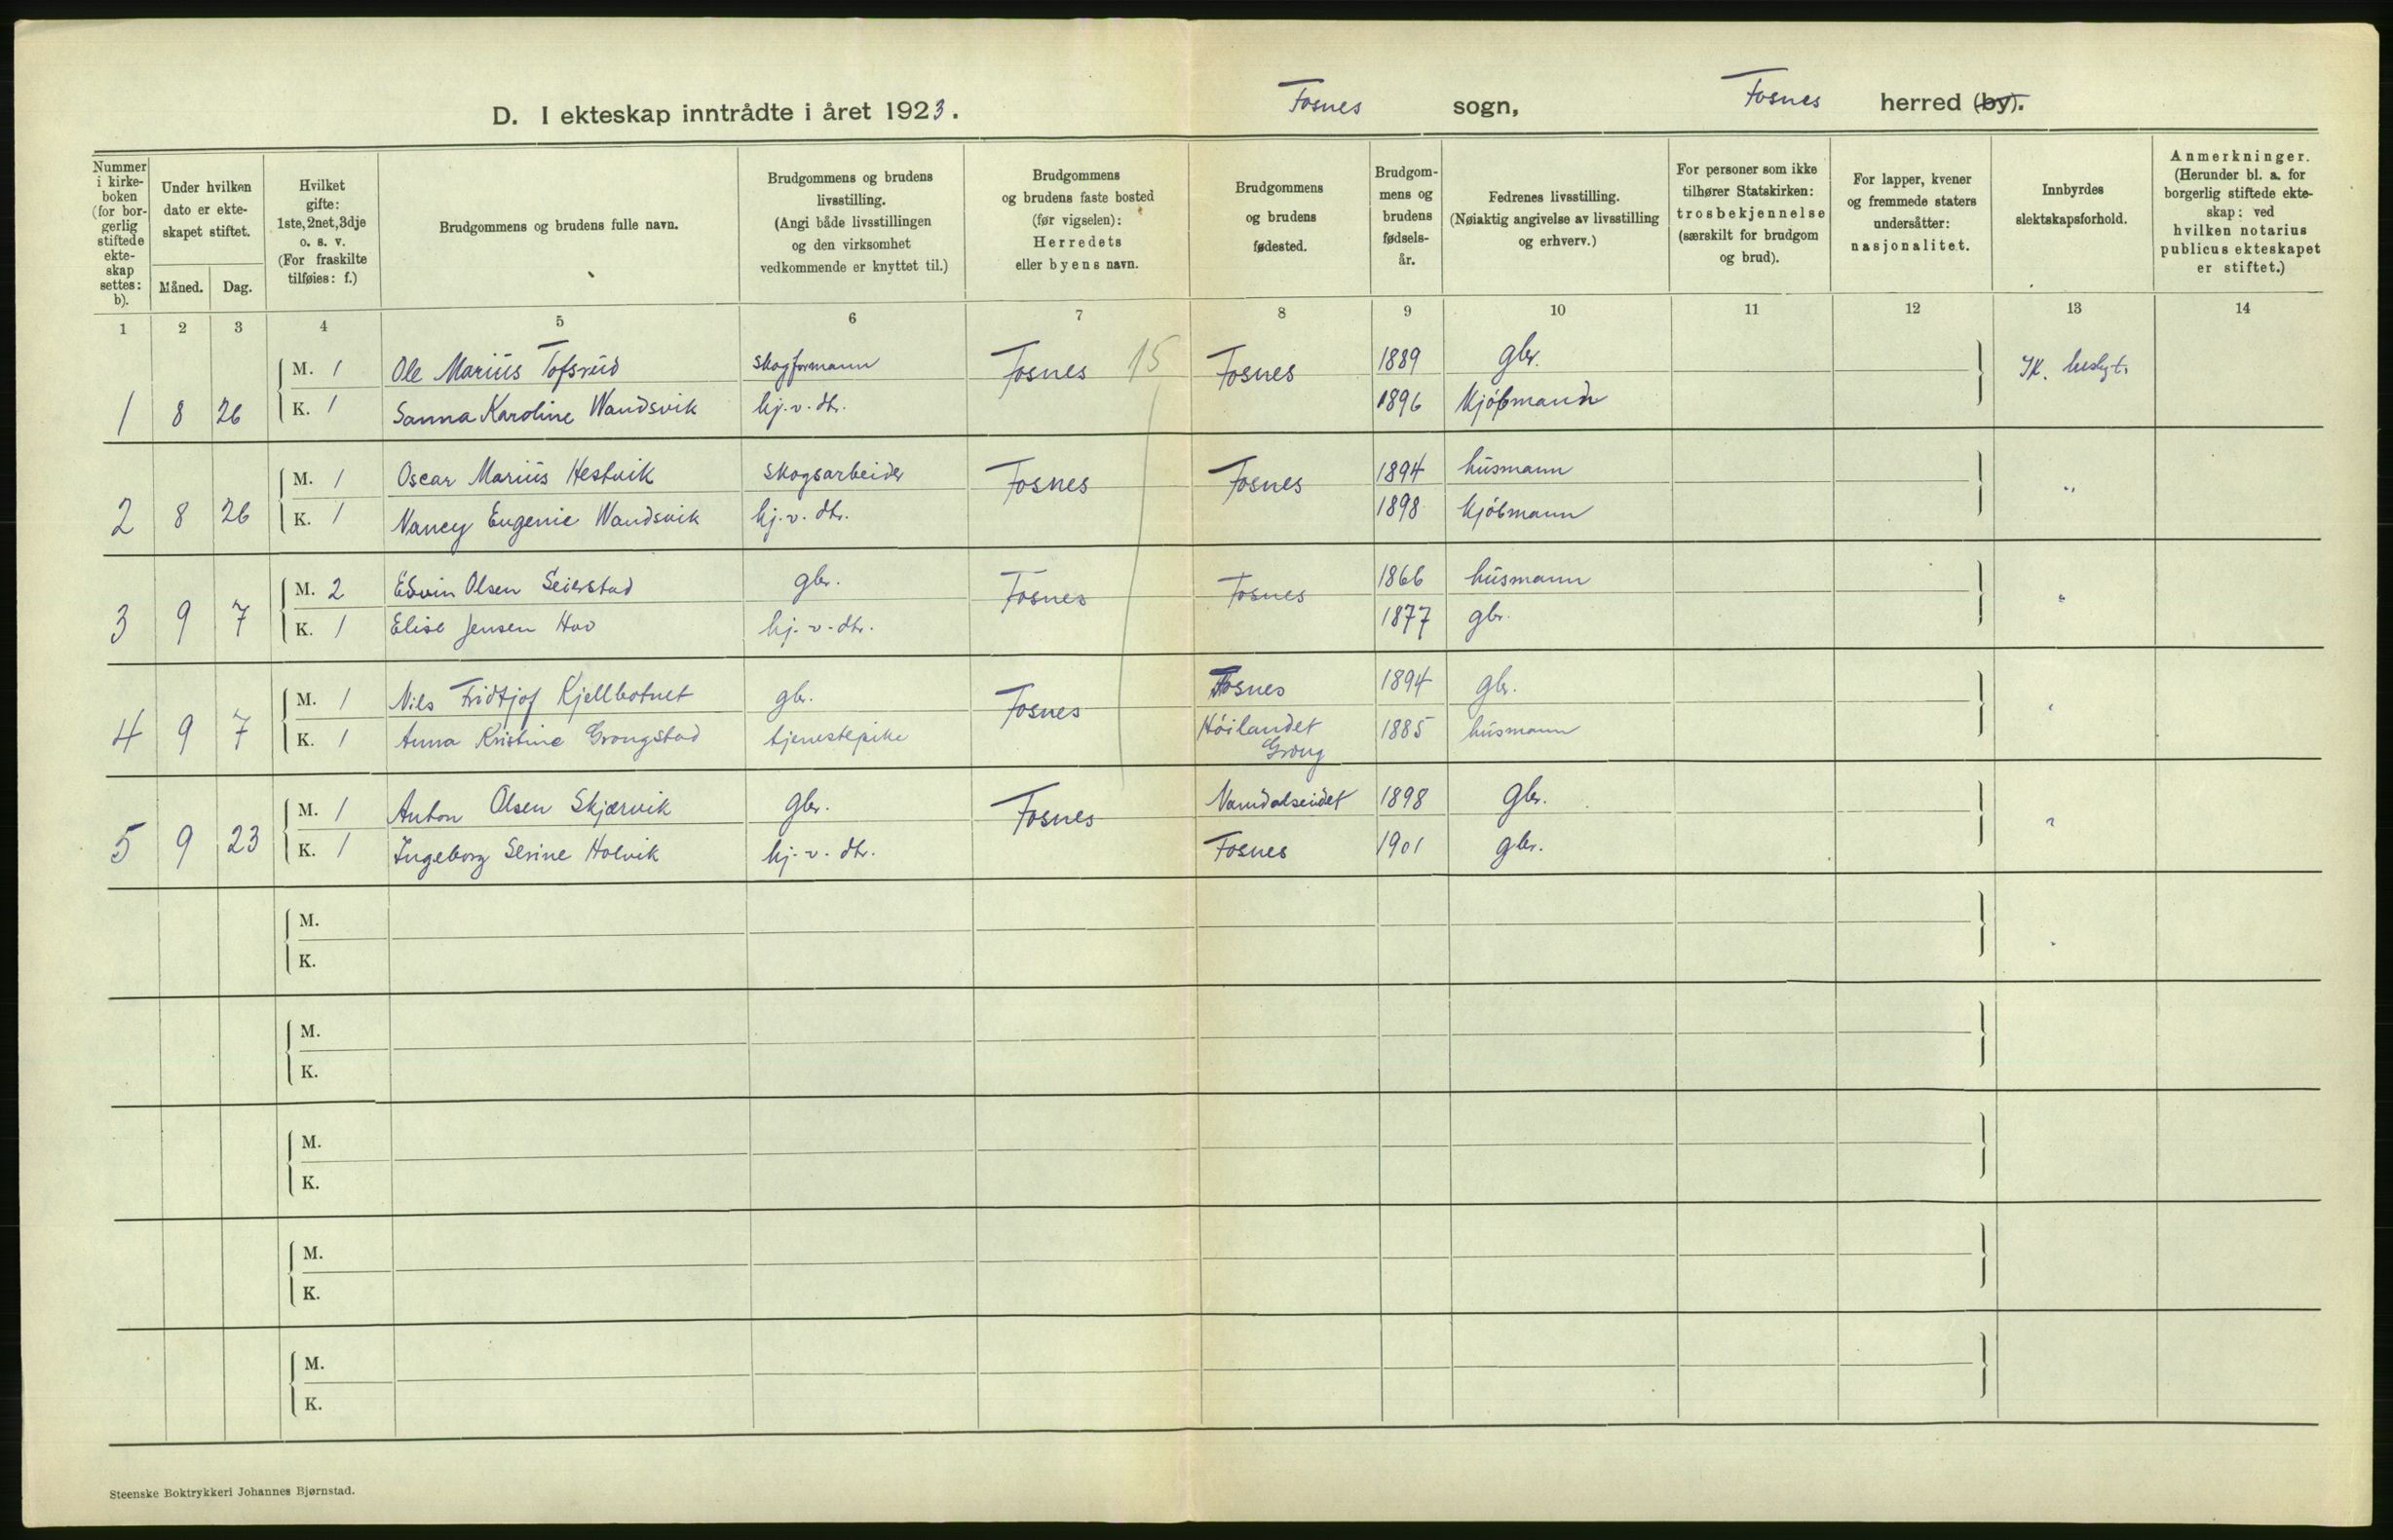 D. I ekteskap inntrådte i året 1923.
Fosnes sogn, Fosnes herred (by).
Nummer i kirke-boken (for bor-gerlig stiftede ekte-skap settes: b).
Under hvilken dato er ekte-skapet stiftet.
Måned. Dag.
Hvilket gifte: 1ste, 2net, 3dje o. s. v. (For fraskilte tilføies: f.)
Brudgommens og brudens fulle navn.
Brudgommens og brudens livsstilling. (Angi både livsstillingen og den virksomhet vedkommende er knyttet til.)
Brudgommens og brudens faste bosted (før vigselen): Herredets eller byens navn.
Brudgommens og brudens fødested.
Brudgom-mens og brudens fødsels-år.
Fedrenes livsstilling. (Nøiaktig angivelse av livsstilling og erhverv.)
For personer som ikke tilhører Statskirken: trosbekjennelse (særskilt for brudgom og brud).
For lapper, kvener og fremmede staters undersåtter: nasjonalitet.
Innbyrdes slektskapsforhold.
Anmerkninger. (Herunder bl. a. for borgerlig stiftede ekte-skap: ved hvilken notarius publicus ekteskapet er stiftet.)
1 2 3 4 5 6 7 8 9 10 11 12 13 14
M. 1 Ole Marius Tofsrud skogformann Fosnes 15 Fosnes 1889 gbr. Ik. beslyt.
1 8 26 K. 1 Sanna Karoline Wandsvik hj. v. dtr. 1896 Kjøbmand
M. 1 Oscar Marius Hestvik skogsarbeider Fosnes Fosnes 1894 husmann "
2 8 26 K. 1 Nancy Eugenie Wandsvik hj. v. dtr. 1898 kjøbmann
M. 2 Edvin Olsen Seierstad gbr. Fosnes Fosnes 1866 husmann "
3 9 7 K. 1 Elise Jensen Hov hj. v. dtr. 1877 gbr.
M. 1 Nils Fridtjof Kjellbotnet gbr. Fosnes Fosnes 1894 gbr. "
4 9 7 K. 1 Anna Kristine Grongstad tjenestepike Høilandet 1885 husmann
Grong
M. 1 Anton Olsen Skjærvik gbr. Fosnes Namdalseidet 1898 gbr. "
5 9 23 K. 1 Ingeborg Serine Holvik hj. v. dtr. Fosnes 1901 gbr.
M.
K.
M.
K.
M.
K.
M.
K.
M.
K.
Steenske Boktrykkeri Johannes Bjørnstad.